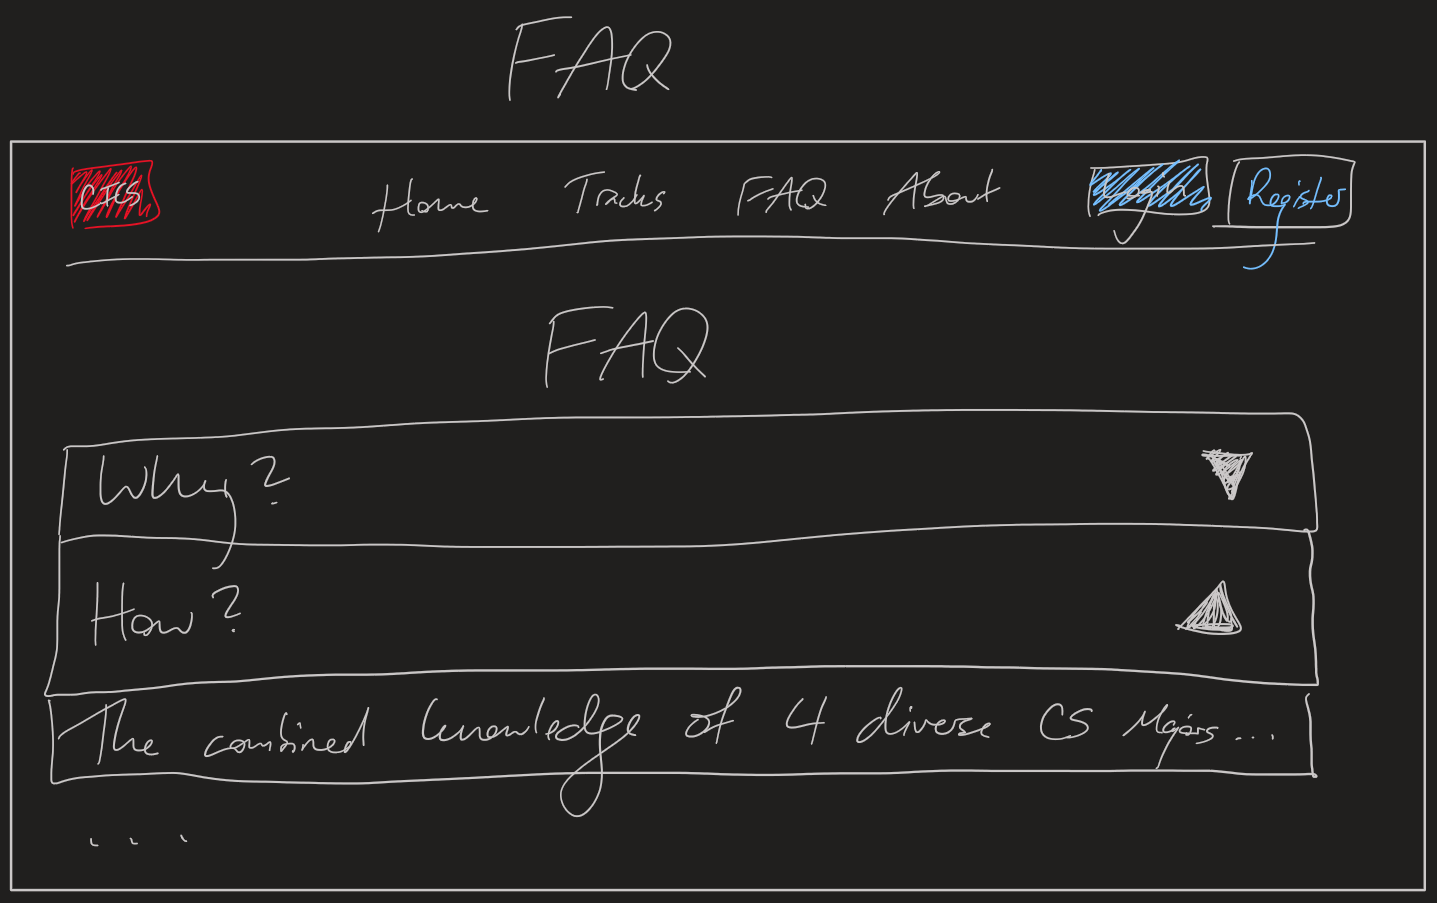 FAQ
CICS Home Tracks FAQ About Login Register
FAQ
Why?
How?
The combined knowledge of 4 diverse CS Majors...
...